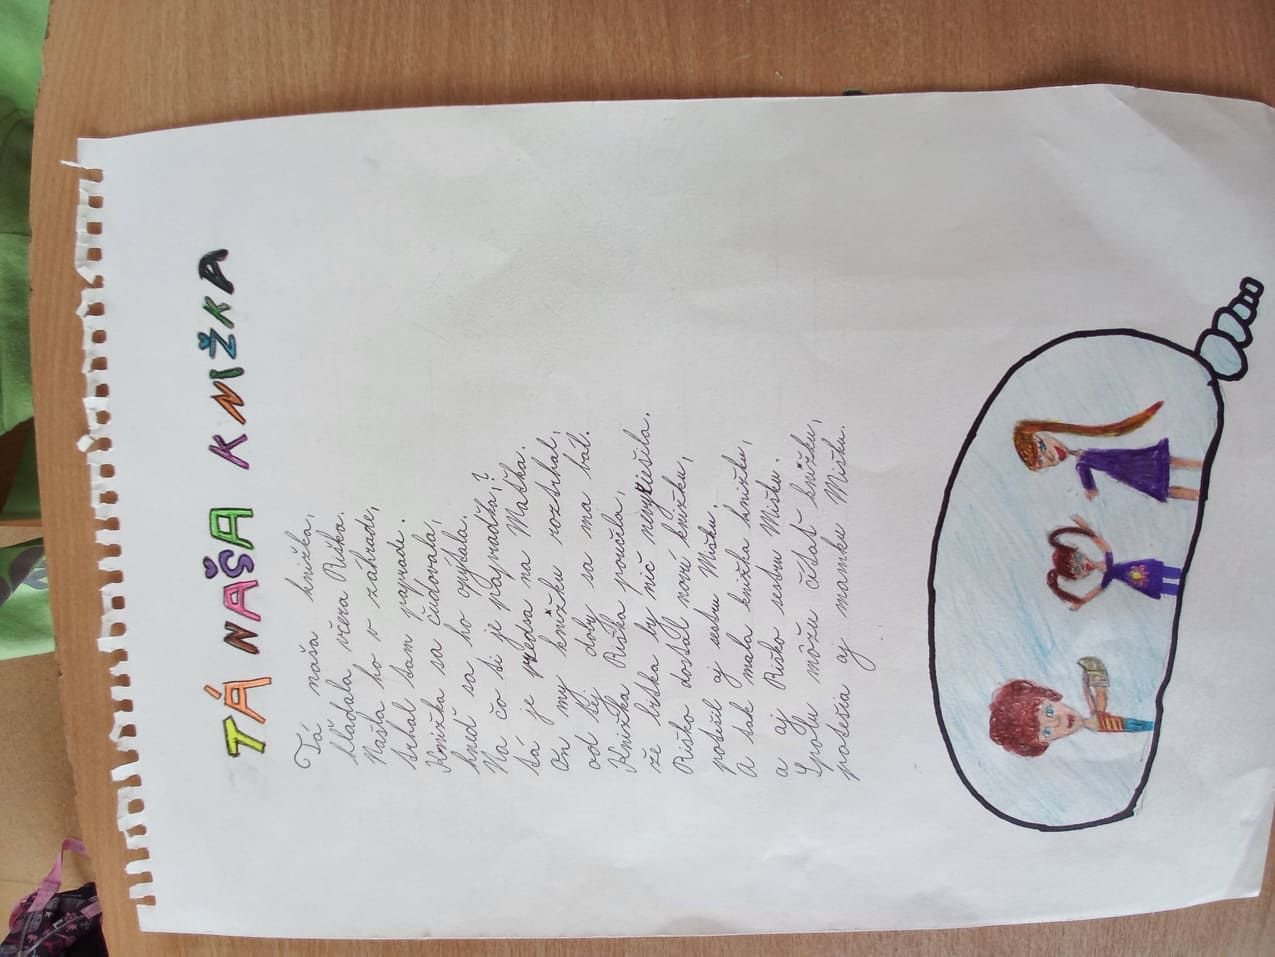 TÁ NAŠA KNIŽKA
Tá naša knižka,
hľadala včera Riška.
Našla ho v záhrade,
trhal tam paprade.
Knižka sa čudovala,
hneď sa ho opýtala.
Na čo ti je papradie?
tá je predsa na Maťka.
On my knižku roztrhal,
od tej doby sa ma bál.
Knižka Riška poučila,
že bitka by nič nevyriešila.
Riško dostal novú knižku,
potešil aj sestru Mišku.
A tak mala knižka knižku,
a aj Riško sestru Mišku.
Spolu môžu čítať knižku,
potešia aj mamku Mišku.